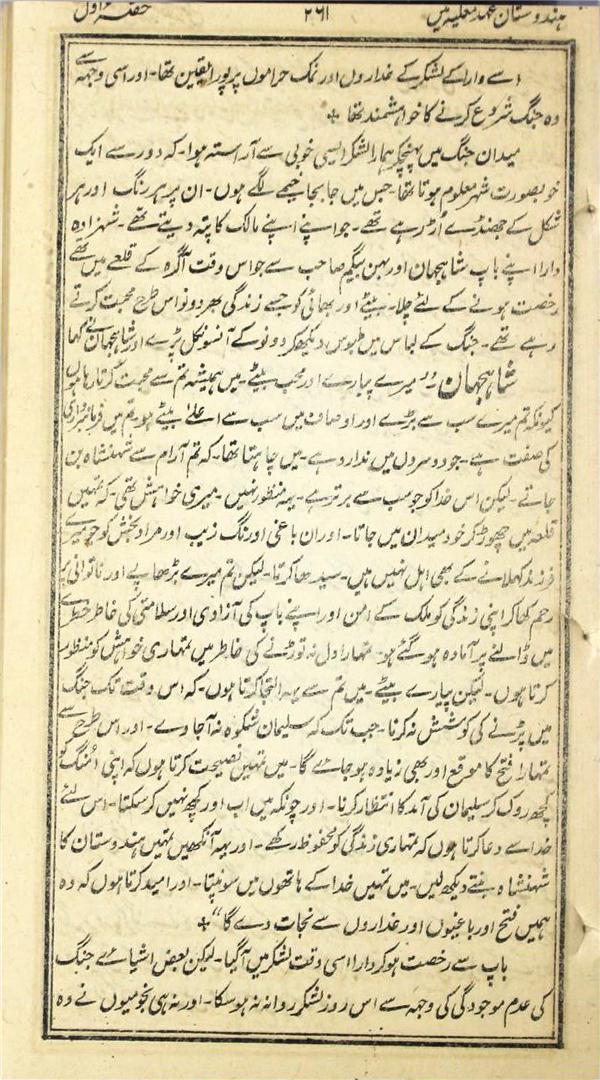 ہندوستان عہد مغلیہ میں ۲۶۱ حصہ اول
اسے دارا کے لشکر کے غداروں اور نمک حراموں پر پورا یقین تھا۔ اور اسی وجہ سے
وہ جنگ شروع کرنے کا خواہشمند تھا ٭
میدان جنگ میں پہنچکر ہمارا لشکر ایسی خوبی سے آراستہ ہوا۔ کہ دور سے ایک
خوبصورت شہر معلوم ہوتا تھا۔ جس میں جا بجا خیمے لگے ہوں۔ ان پر ہر رنگ اور ہر
شکل کے جھنڈے اُڑ رہے تھے۔ جو اپنے اپنے مالک کا پتہ دیتے تھے۔ شہزادہ
دارا اپنے باپ شاہجہان اور بہن بیگم صاحب سے جو اس وقت آگرہ کے قلعے میں تھے
رخصت ہونے کے لئے چلا۔ بیٹے اور بھائی کو جسے زندگی بھر دونو اس طرح محبت کرتے
رہے تھے۔ جنگ کے لباس میں ملبوس دیکھکر دونو کے آنسو نکل پڑے اور شاہجہان نے کہا
شاہجہان "میرے پیارے اور محب بیٹے۔ میں ہمیشہ تم سے محبت کرتا رہا ہوں
کیونکہ تم میرے سب سے بڑے اور اوصاف میں سب سے اعلےٰ بیٹے ہو۔ تم میں فرمانبرداری
کی صفت ہے۔ جو دوسروں میں ندارد ہے۔ میں چاہتا تھا۔ کہ تم آرام سے شہنشاہ بن
جاتے۔ لیکن اس خدا کو جو سب سے برتر ہے۔ یہہ منظور نہیں۔ میری خواہش تھی۔ کہ تمہیں
قلعہ میں چھوڑ کر خود میدان میں جاتا۔ اور ان باغی اورنگ زیب اور مراد بخش کو جو میرے
فرزند کہلانے کے بھی اہل نہیں ہیں۔ سیدھا کرتا۔ لیکن تم میرے بڑھاپے اور ناتوانی پر
رحم کھا کر اپنی زندگی کو ملک کے امن اور اپنے باپ کی آزادی اور سلامتی کی خاطر خطرے
میں ڈالنے پر آمادہ ہو گئے ہو۔ تمہارا دل نہ توڑنے کی خاطر میں تمہاری خواہش کو منظور
کرتا ہوں۔ لیکن پیارے بیٹے۔ میں تم سے یہہ التجا کرتا ہوں۔ کہ اس وقت تک جنگ
میں پڑنے کی کوشش نہ کرنا۔ جب تک کہ سلیمان شکوہ نہ آجاوے۔ اور اس طرح سے
تمہارا فتح کا موقع اور بھی زیادہ ہو جاے گا۔ میں تمہیں نصیحت کرتا ہوں کہ اپنی اُمنگ کو
کچھ روک کر سلیمان کی آمد کا انتظار کرنا۔ اور چونکہ میں اب اور کچھ نہیں کر سکتا۔ اس لئے
خدا سے دعا کرتا ہوں کہ تمہاری زندگی کو محفوظ رکھے۔ اور یہہ آنکھیں تمہیں ہندوستان کا
شہنشاہ بنتے دیکھ لیں۔ میں تمہیں خدا کے ہاتھوں میں سونپتا۔ اور امید کرتا ہوں کہ وہ
ہمیں فتح اور باغیوں اور غداروں سے نجات دے گا" ٭
باپ سے رخصت ہو کر دارا اسی وقت لشکر میں آگیا۔ لیکن بعض اشیاے جنگ
کی عدم موجودگی کی وجہ سے اس روز لشکر روانہ نہ ہو سکا۔ اور نہ ہی نجومیوں نے وہ